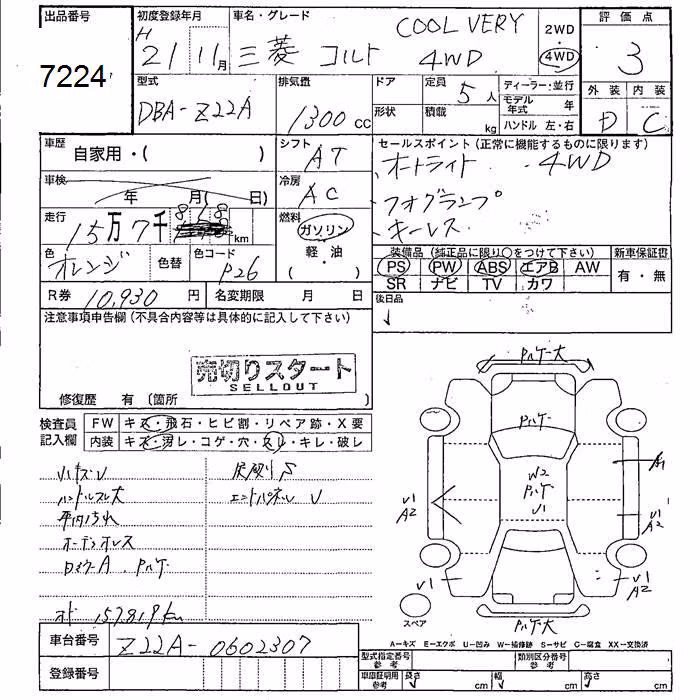 出品番号
7224
初度登録年月
H
21 11月
車名・グレード
COOL VERY
三菱 コルト 4WD
2WD
4WD
評価点
3
型式
DBA-Z22A
排気量
1300 cc
ドア
形状
定員
5人
積載
kg
ディーラー・並行
モデル年式 年
ハンドル 左・右
外装 内装
D C
車歴
自家用・( )
シフト
AT
セールスポイント (正常に機能するものに限ります)
オートライト ・4WD
・フォグランプ
・キーレス
車検
年 月( 日)
冷房
AC
走行
15万7千 818 km
燃料
ガソリン
軽・油
( ・ )
色
オレンジ
色替
色コード
P26
装備品 (純正品に限り○をつけて下さい)
PS PW ABS エアB AW
SR ナビ TV カワ
新車保証書
有・無
R券 10,930 円
名変期限 月 日
後日品
注意事項申告欄 (不具合内容等は具体的に記入して下さい)
売切りスタート
SELLOUT
修復歴 有 (箇所 )
検査員
記入欄
FW キズ・飛石・ヒビ割・リペア跡・X要
内装 キズ・汚レ・コゲ・穴・スレ・キレ・破レ
小キズV
ハンドルスレ大
エンドパネル V
オーデオレス
157819km
車台番号
Z22A-0602307
登録番号
Pハゲ大
Pハゲ
W2
Pハゲ
V1
A1
V1
A2
V1
A2
V1
V1
A2
スペア
Pハゲ大
A－キズ E－エクボ U－凹み W－補修跡 S－サビ C－腐食 XX－交換済
型式指定番号
参考
類別区分番号
参考
車庫証明用
参考
長さ cm
幅 cm
高さ cm